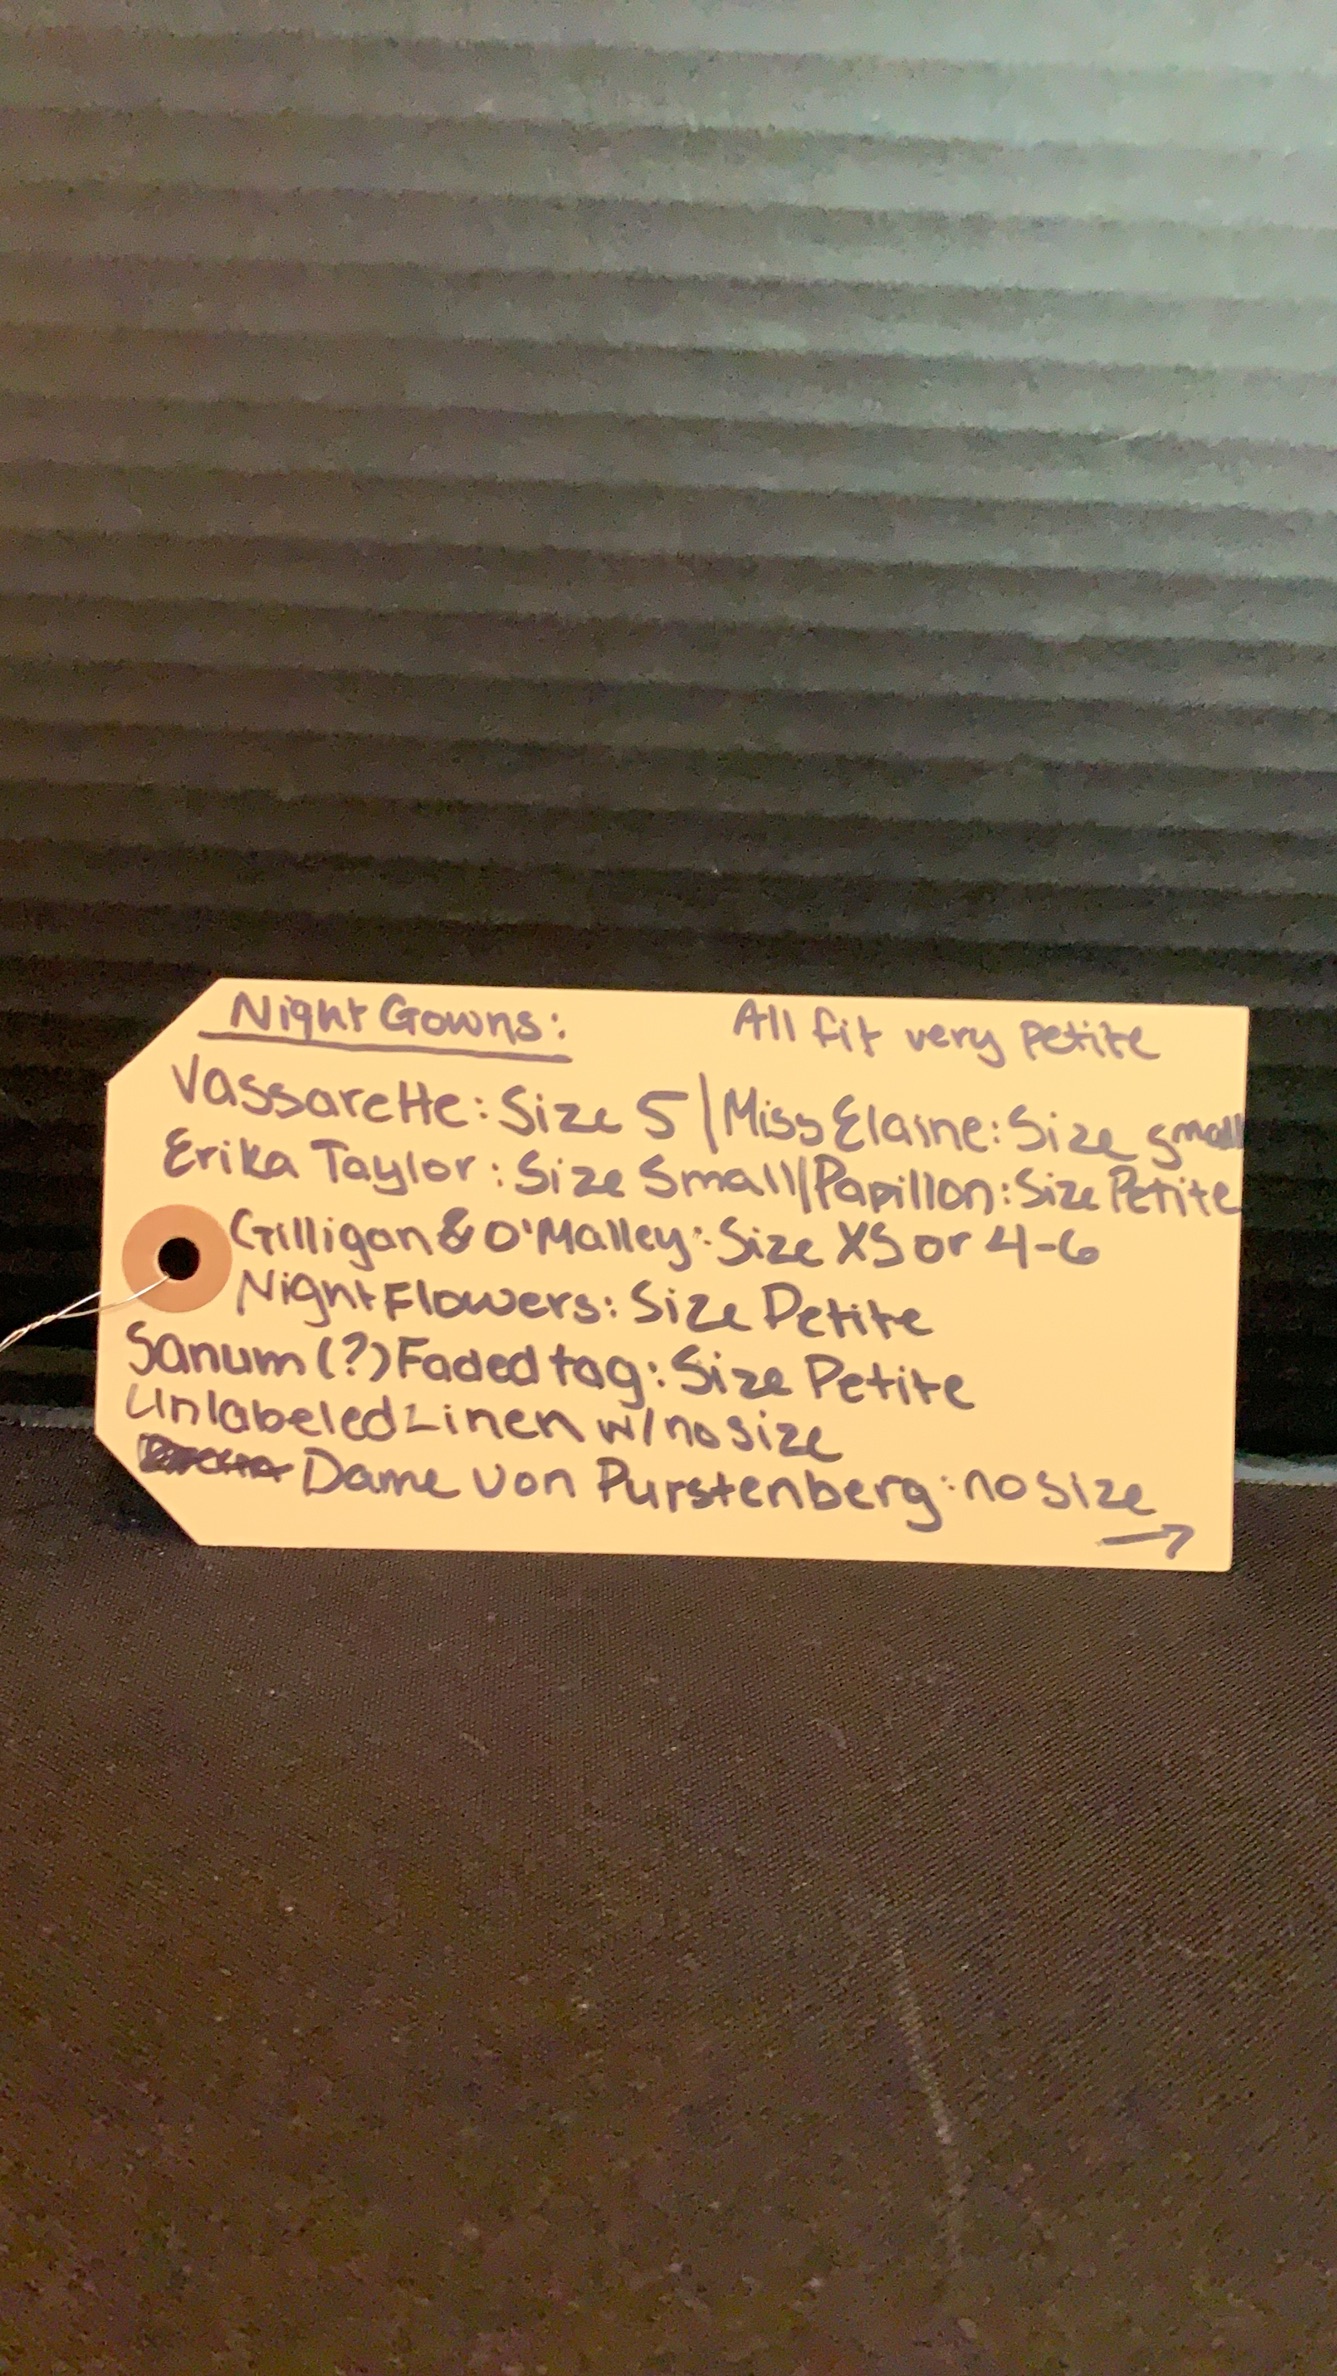 Night Gowns: All fit very petite
Vassarette: Size 5 | Miss Elaine: Size small
Erika Taylor: Size Small/Papillon: Size Petite
Gilligan & O'Malley: Size XS or 4-6
Night Flowers: Size Petite
Sanum (?) Faded tag: Size Petite
Unlabeled Linen w/ no size
Dame Von Purstenberg: no size
→